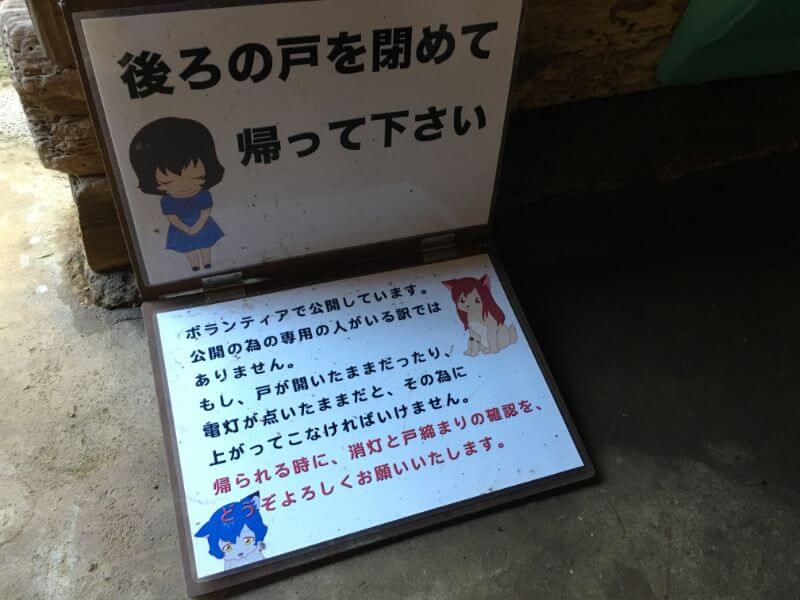 後ろの戸を閉めて
帰って下さい
ボランティアで公開しています。
公開の為の専用の人がいる訳では
ありません。
もし、戸が開いたままだったり、
電灯が点いたままだと、その為に
上がってこなければいけません。
帰られる時に、消灯と戸締まりの確認を、
どうぞよろしくお願いいたします。